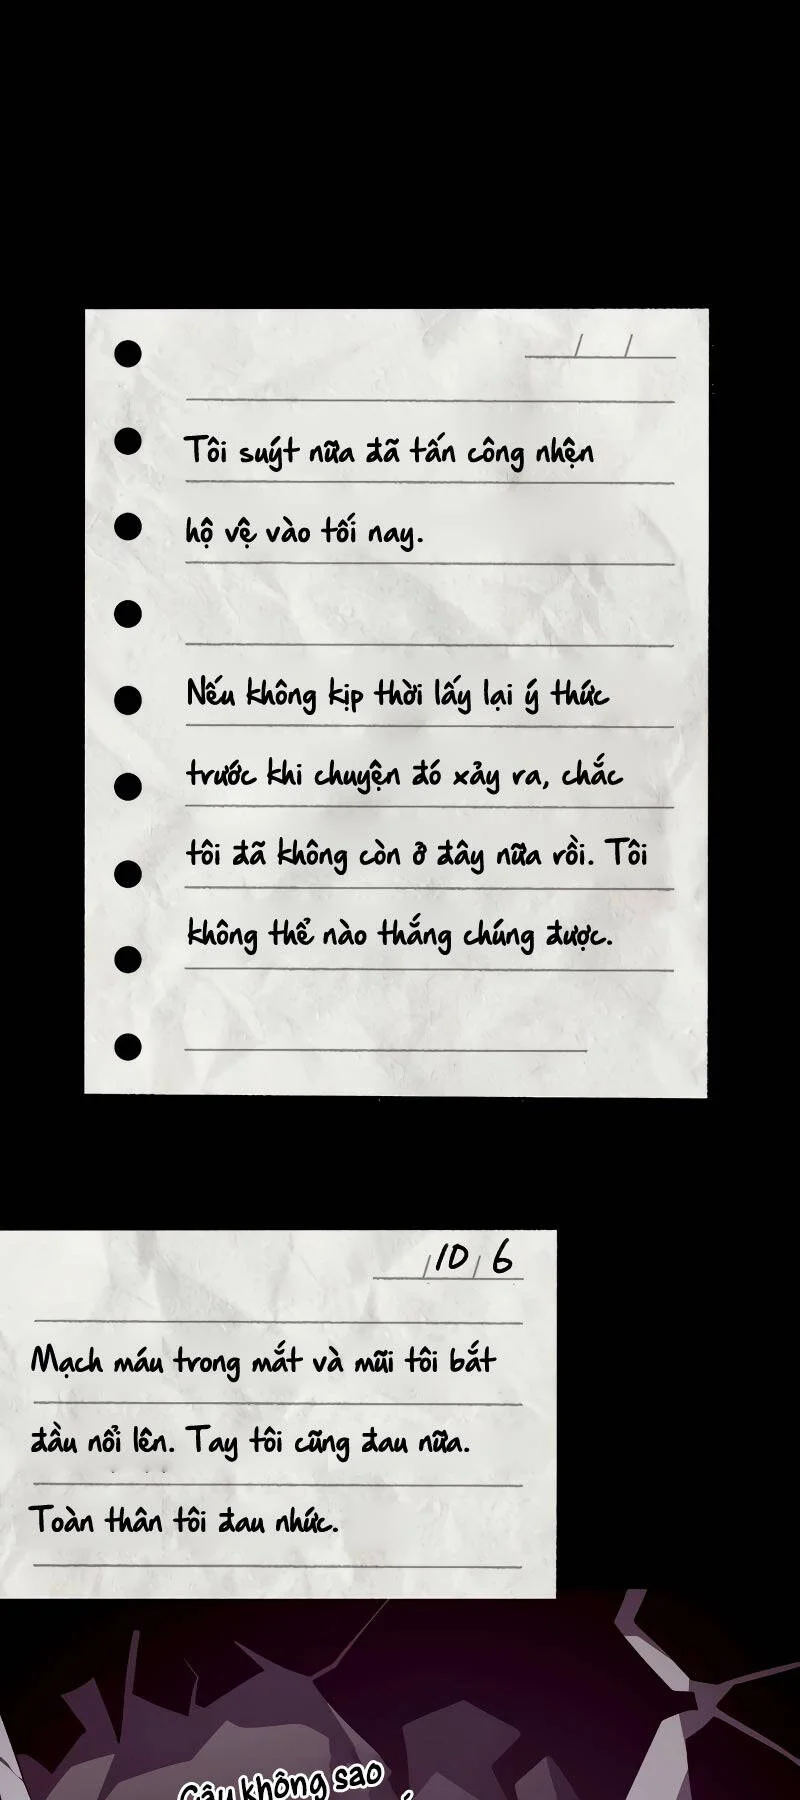 / /
Tôi suýt nữa đã tấn công nhện
hộ vệ vào tối nay.
Nếu không kịp thời lấy lại ý thức
trước khi chuyện đó xảy ra, chắc
tôi đã không còn ở đây nữa rồi. Tôi
không thể nào thắng chúng được.
/10/ 6
Mạch máu trong mắt và mũi tôi bắt
đầu nổi lên. Tay tôi cũng đau nữa.
Toàn thân tôi đau nhức.
Cậu không sao